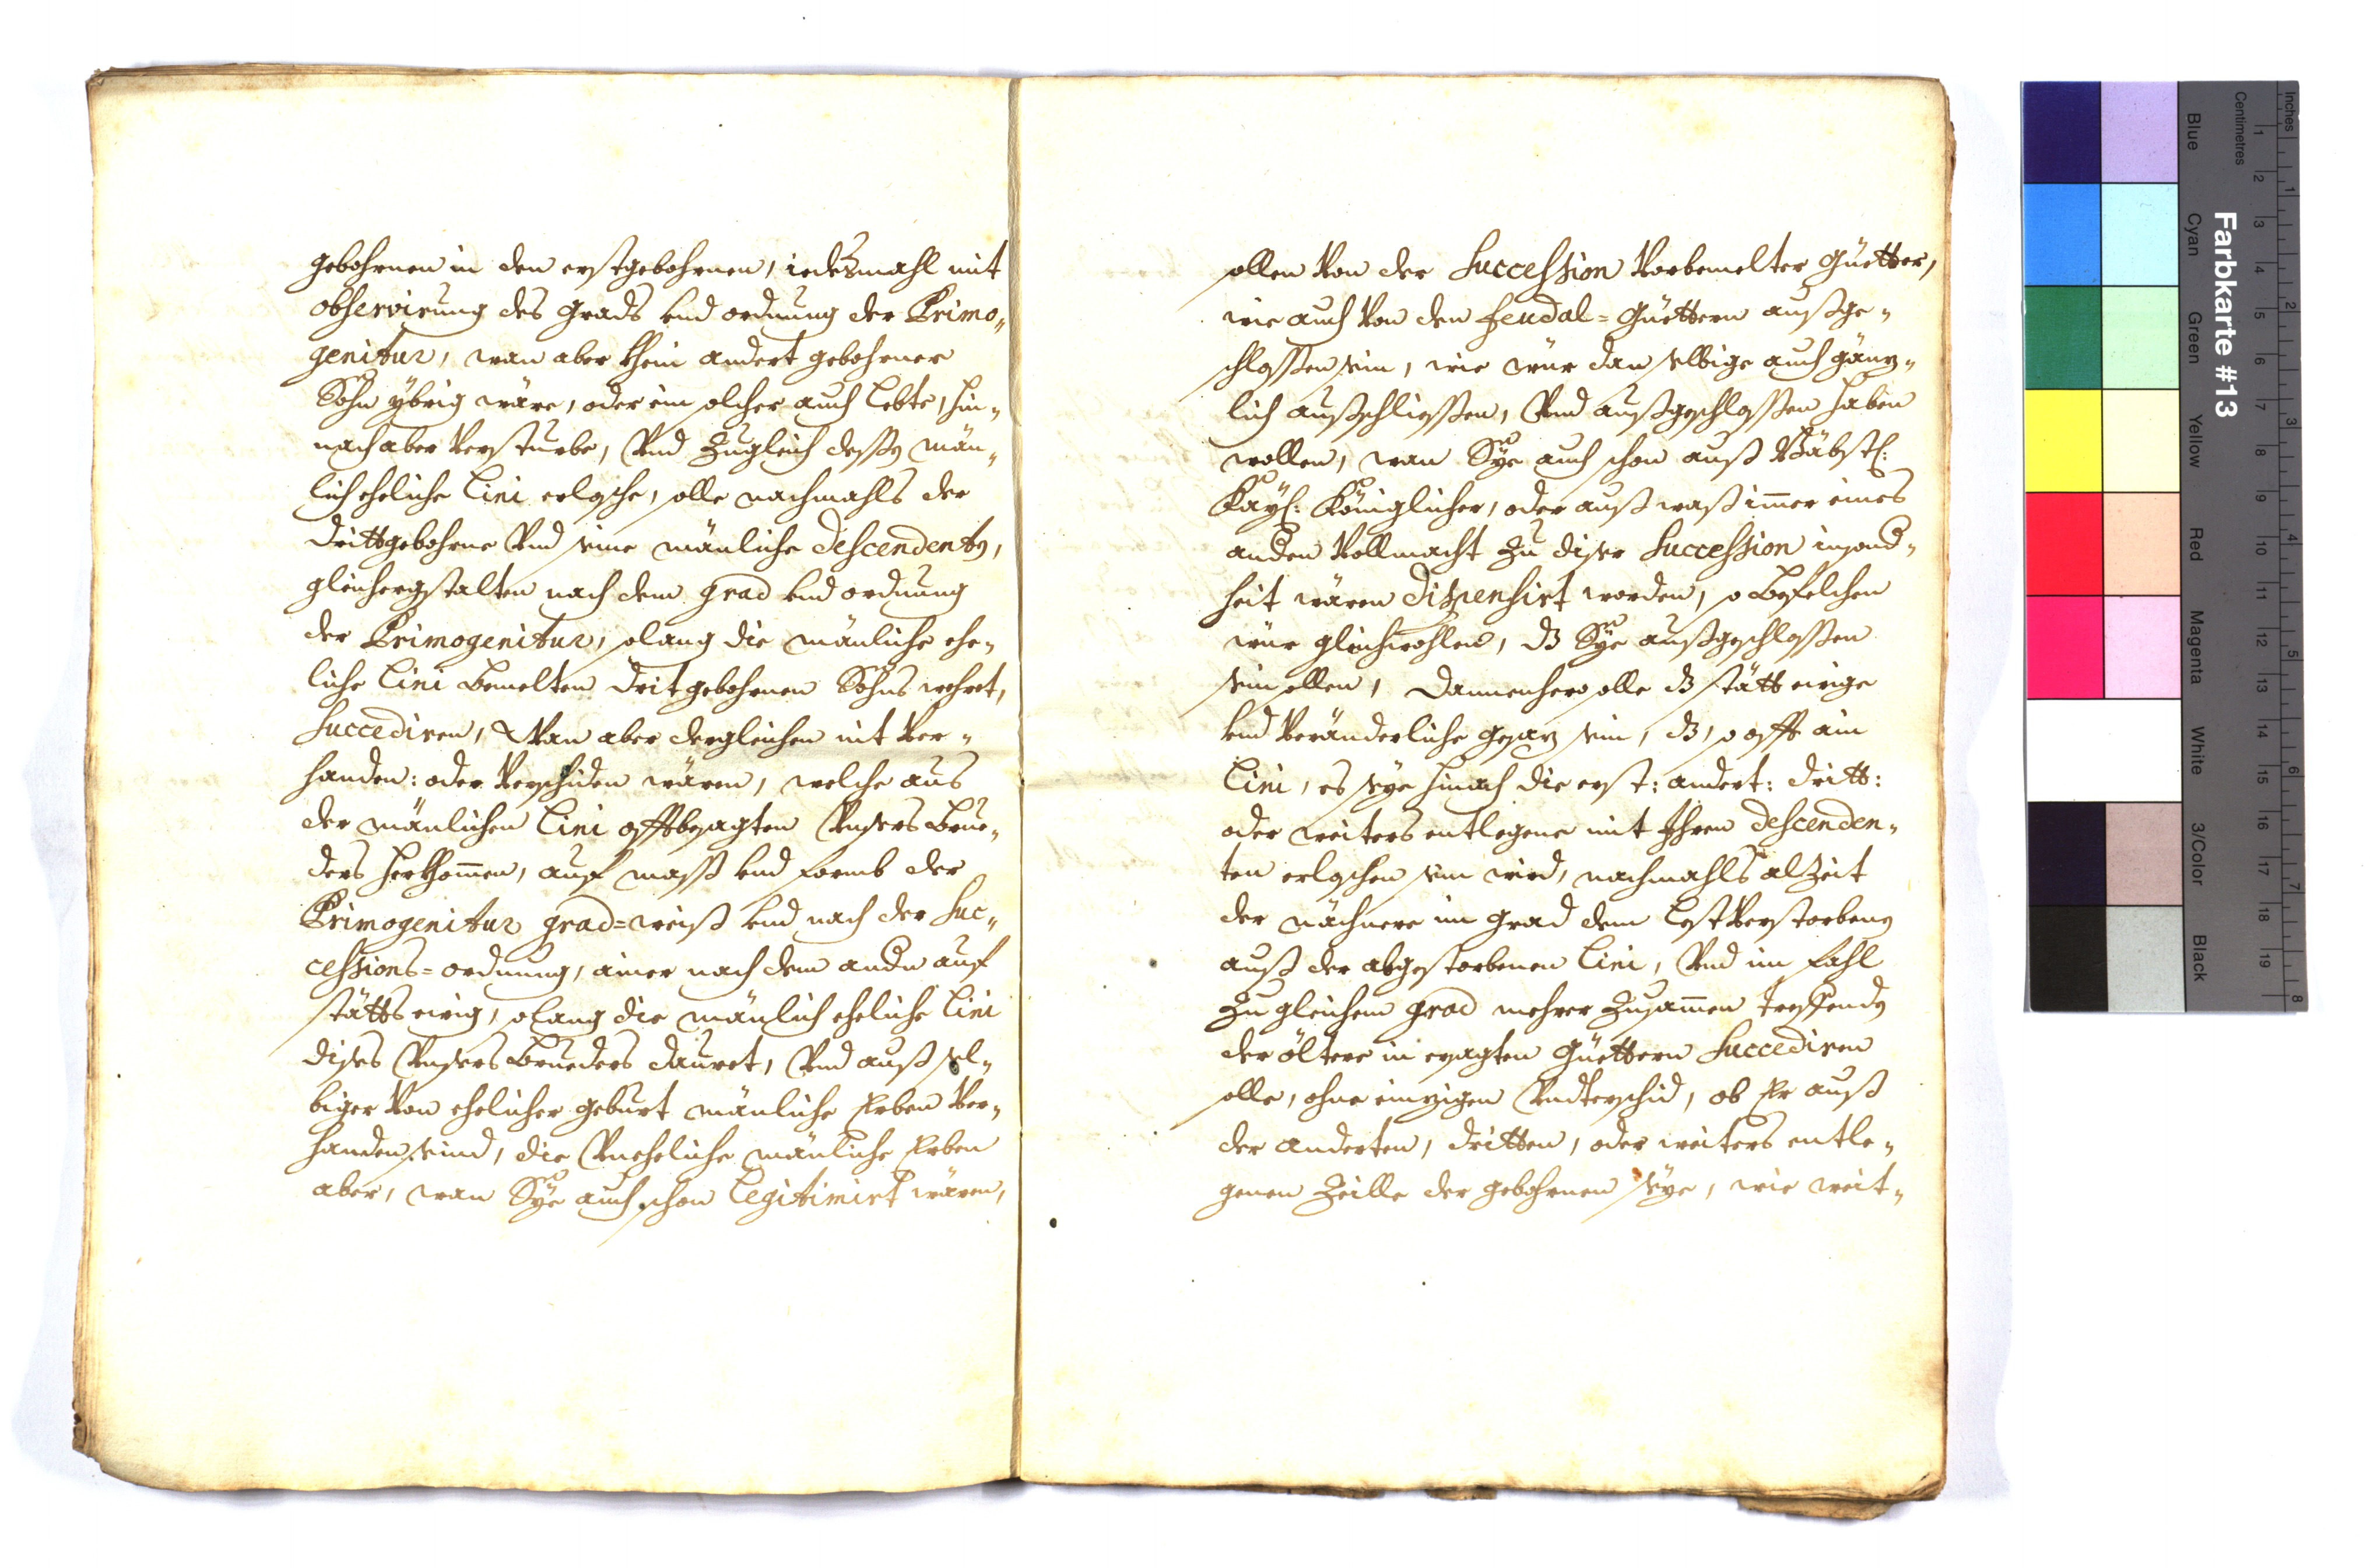 gebohrnen in den erstgebohrnen, iedesmahl mit
observirung des grads vnd ordnung der Primo„
genitur, wan aber khein andert gebohrner
Sohn ÿbrig wäre, oder ein solcher auch lebte, hin„
nach aber versturbe, Vnd Zugleich dessen män„
lich eheliche Lini erlösche, solle nachmahls der
drittgebohrne Vnd seine mänliche descendenten,
gleichergstalten nach dem grad vnd ordnung
der Primogenitur, solang die mänliche ehe„
liche Lini bemelten dritgebohrnen Sohns wehret,
succediren, Wan aber dergleichen nit ver„
handen: oder verschiden wären, welche aus
der mänlichen Lini offtbesagten Vnsers brue„
ders herkhom̄en, auf mass vnd formb der
Primogenitur grad=weiß vnd nach der Suc„
cessions=ordnung, ainer nach dem andn auf
stätts ewig, solang die mänlich eheliche Lini
dises Vnsers brueders dauret, Vnd auß sel„
biger von ehelicher geburt mänliche Erben ver„
handen seind, die Vneheliche mänliche Erben
aber, wan Sÿe auch schon legitimirt wären,
sollen von der Succession vorbemelter güetter,
wie auch von den feudal=güettern außge„
schlossen sein, wie wür dan selbige auch gänz„
lich außschliessen, Vnd außgeschlossen haben
wollen, wan Sÿe auch schon auß Bäbstl:
Kaÿl: Königlicher, oder auß waß im̄er eines
anden vollmacht zu diser Succession insond„
heit wären dispensirt worden, so befelchen
wür gleichwohlen, dz Sÿe außgeschlossen
sein sollen, dannenhero solle dz stätt ewige
vnd veränderliche gesaz sein, dz, so offt ain
Lini, es seÿe hinach die erst: andert: dritt:
oder weiters entlegene mit Ihren descenden„
ten erloschen sein wird, nachmahls alzeit
der nächnere im grad dem lestverstorbenen
auß der abgestorbenen Lini, Vnd im fahl
Zu gleichem grad mehrer Zusam̄en treffenden
der öltere in ersagten güettern succediren
solle, ohne einzigen Vndterschid, ob Er auß
der anderten, dritten, oder weiters entle„
genen Zeille der gebohrnen seÿe, wie weit„
Farbkarte #13
Inches
Centimetres
1 2 3 4 5 6 7 8 9 10 11 12 13 14 15 16 17 18 19
1 2 3 4 5 6 7 8
Blue
Cyan
Green
Yellow
Red
Magenta
White
3/Color
Black